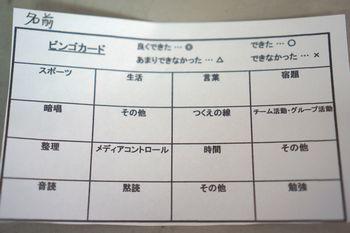 名前
ビンゴカード 良くできた … ◎ できた … ○
あまりできなかった … △ できなかった … ×
スポーツ 生活 言葉 宿題
暗唱 その他 つくえの線 チーム活動・グループ活動
整理 メディアコントロール 時間 その他
音読 黙読 その他 勉強